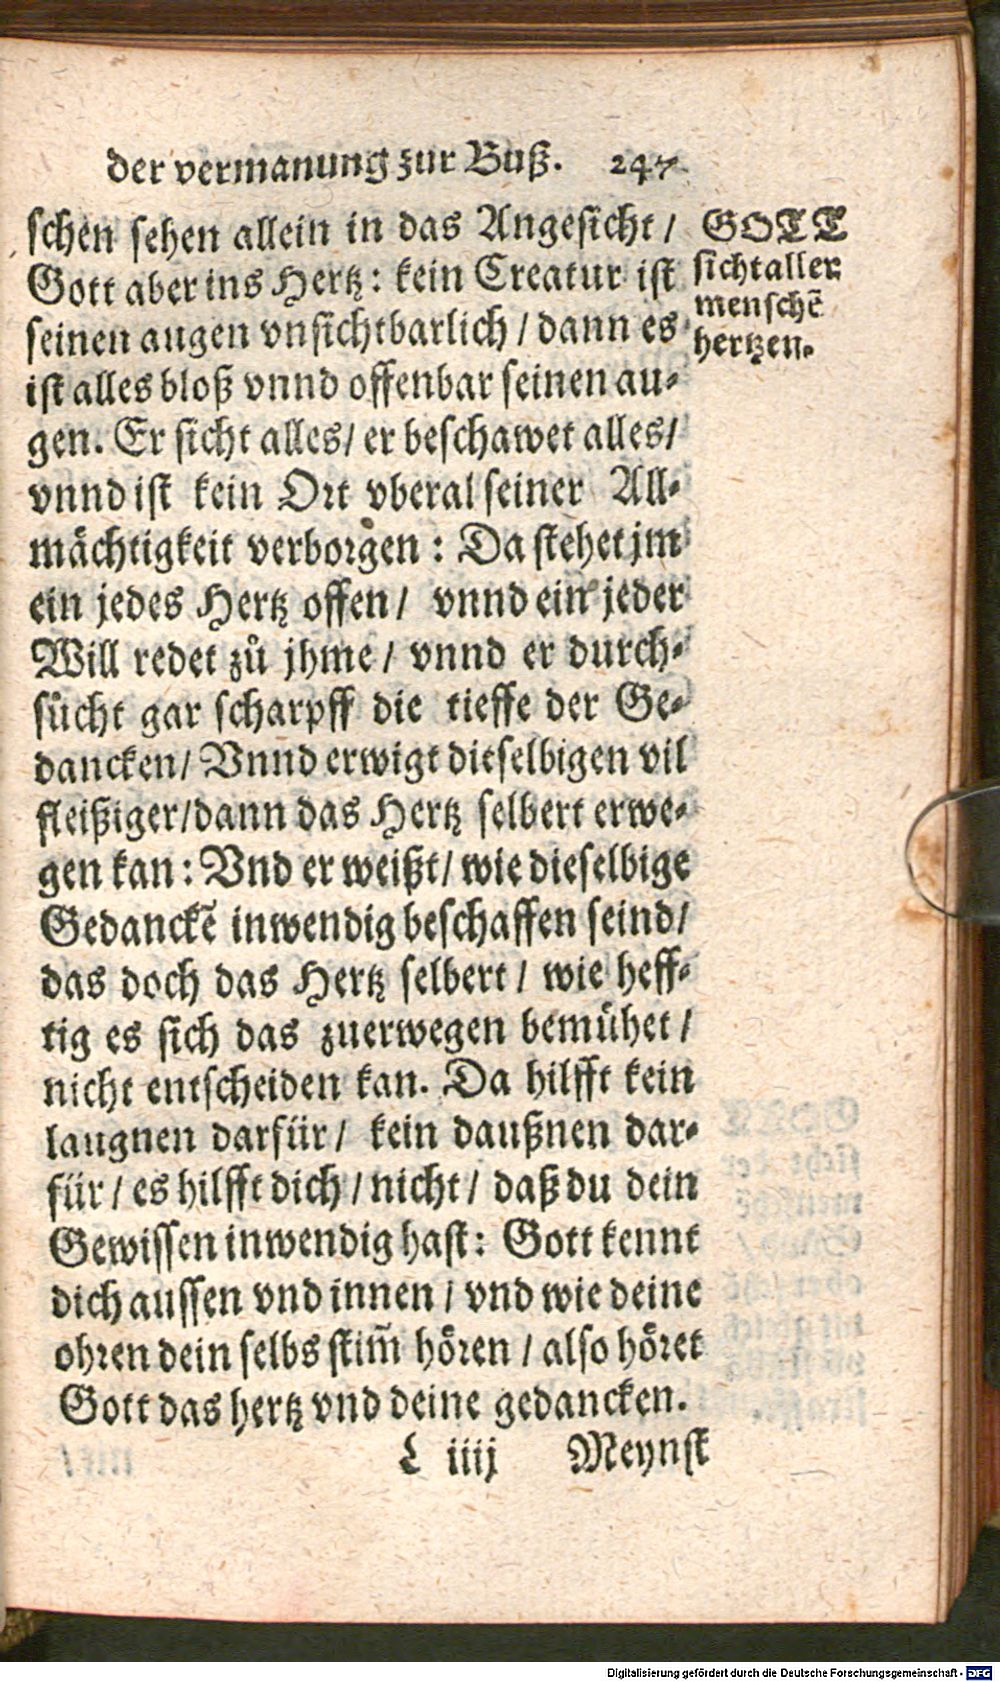 der vermanung zur Buß. 247
schen sehen allein in das Angesicht /
Gott aber ins Hertz : kein Creatur ist
seinen augen vnsichtbarlich / dann es
ist alles bloß vnnd offenbar seinen au⸗
gen. Er sicht alles / er beschawet alles /
vnnd ist kein Ort vberal seiner All⸗
mächtigkeit verborgen : Da stehet jm
ein jedes Hertz offen / vnnd ein jeder
Will redet zů jhme / vnnd er durch⸗
sůcht gar scharpff die tieffe der Ge⸗
dancken / Vnnd erwigt dieselbigen vil
fleißiger / dann das Hertz selbert erwe⸗
gen kan : Vnd er weißt / wie dieselbige
Gedanckē inwendig beschaffen seind /
das doch das Hertz selbert / wie heff⸗
tig es sich das zuerwegen bemühet /
nicht entscheiden kan. Da hilfft kein
laugnen darfür / kein daußnen dar⸗
für / es hilfft dich / nicht / daß du dein
Gewissen inwendig hast : Gott kennt
dich aussen vnd innen / vnd wie deine
ohren dein selbs stim̃ hören / also höret
Gott das hertz vnd deine gedancken.
L iiij Meynst
GOTT
sicht aller
menschē
hertzen.
Digitalisierung gefördert durch die Deutsche Forschungsgemeinschaft - DFG